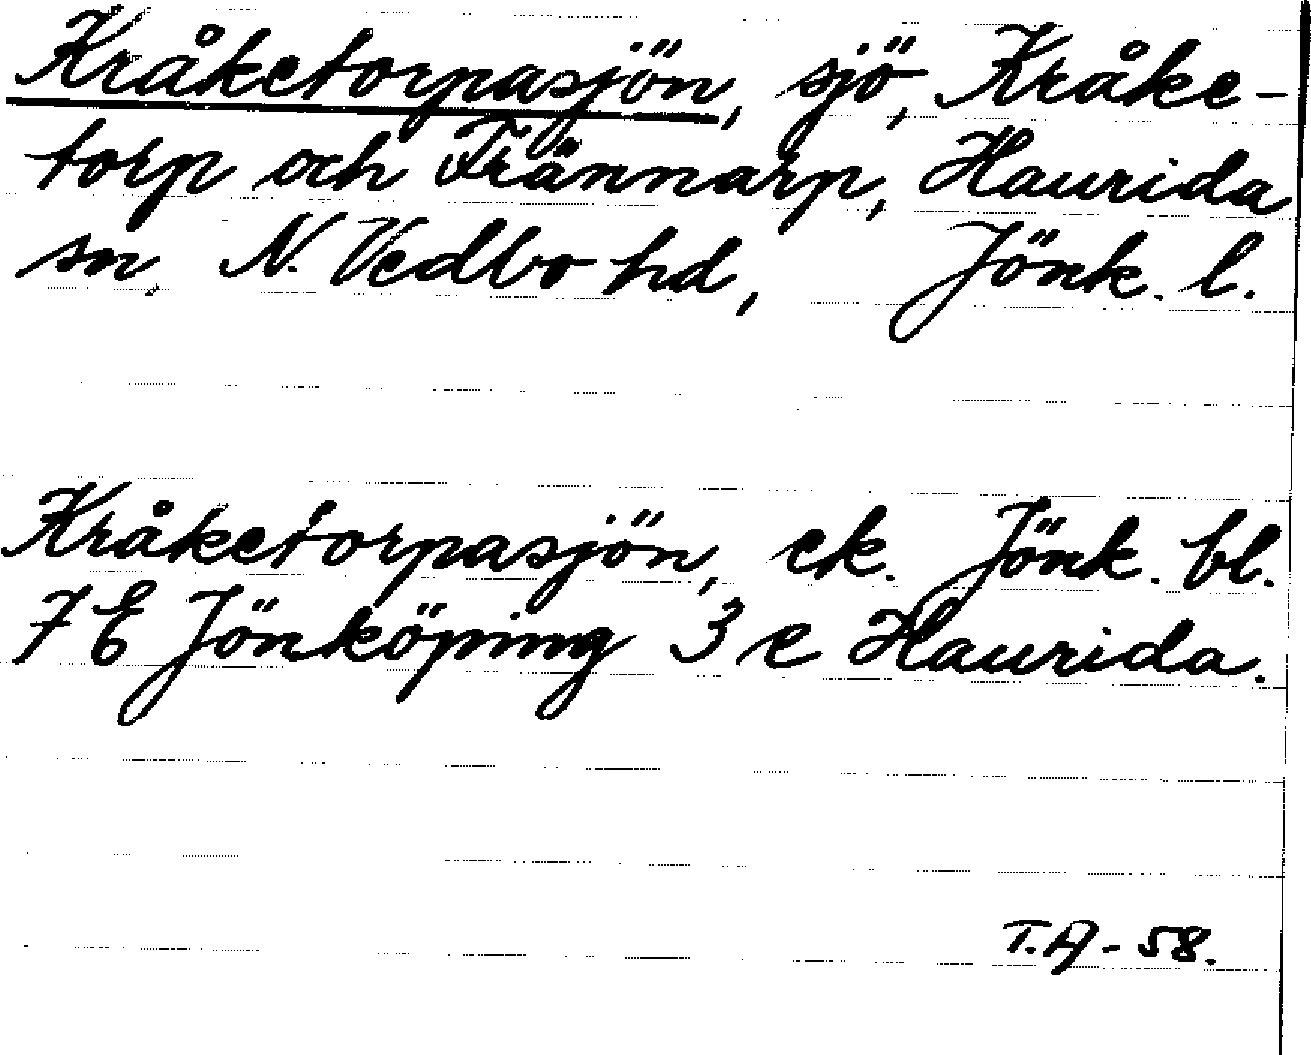 Kråketorpasjön, sjö, Kråke-
torp och Frännarp, Haurida
sn, N. Vedbo hd, Jönk. l.
Kråketorpasjön, ek. Jönk. bl.
7 E Jönköping 3 e Haurida.
T.A - 58.